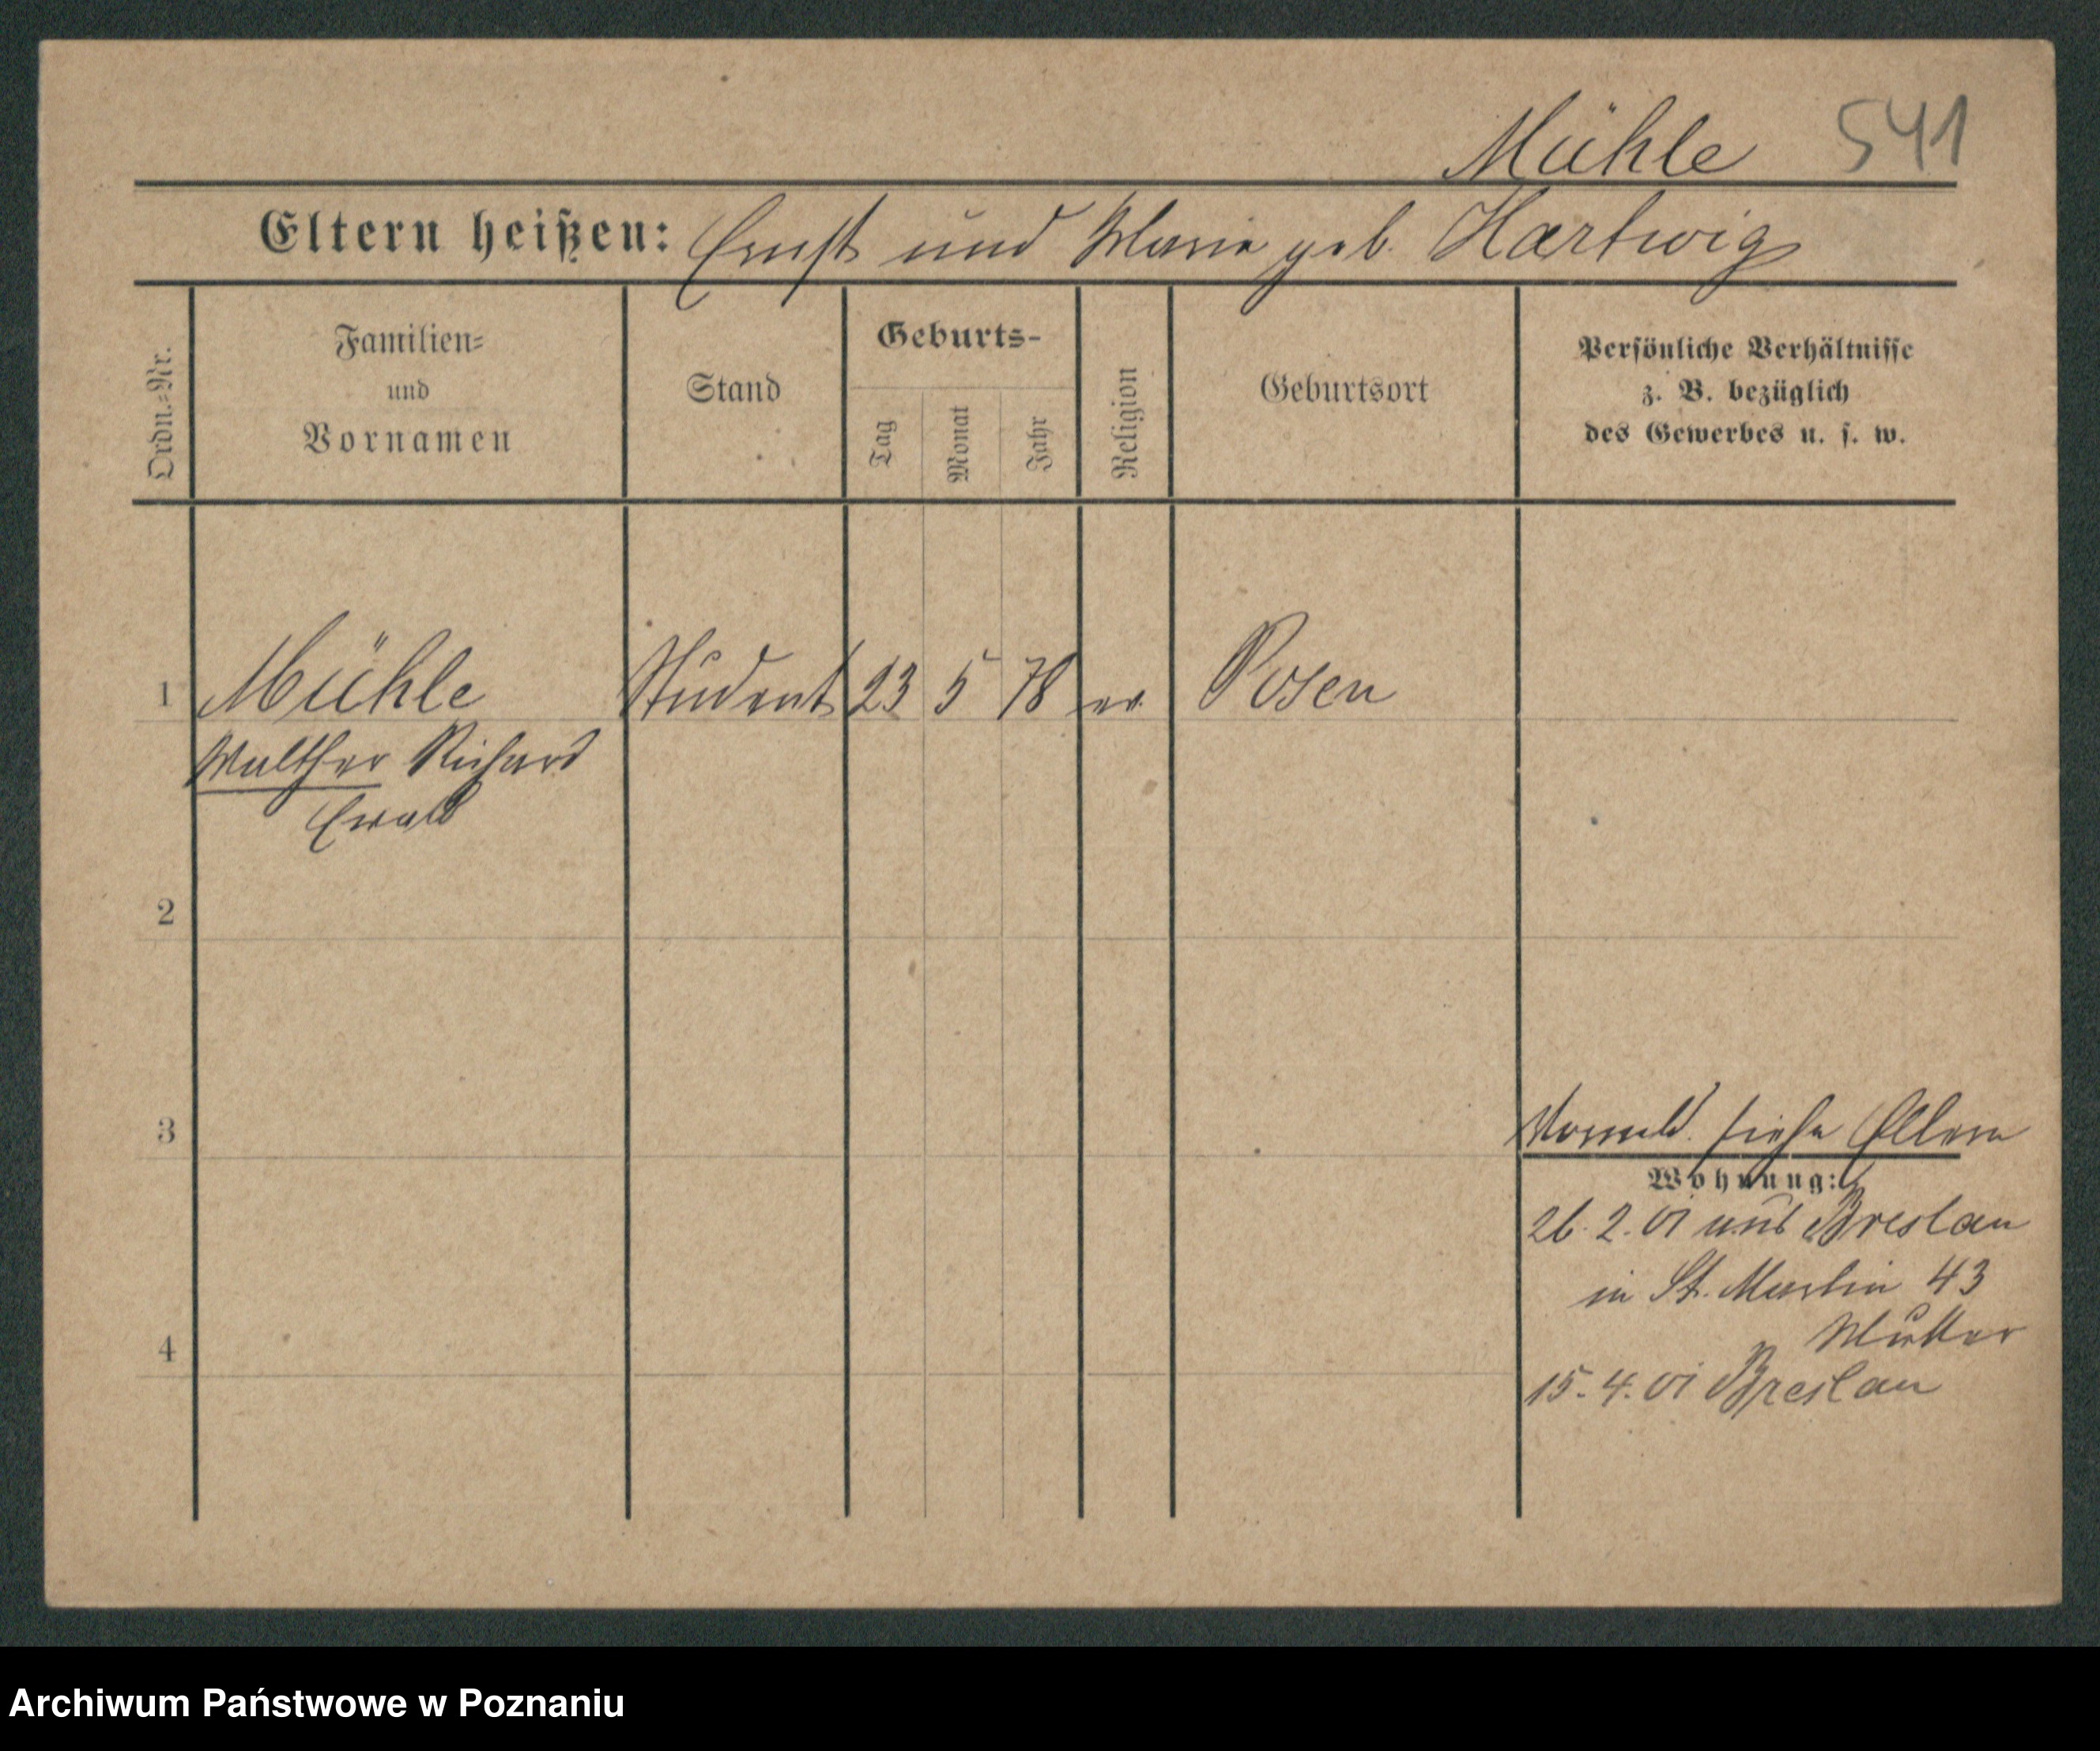 Mühle 541
Eltern heißen: Ernst und Marie geb. Hartwig
Ordn.-Nr.
Familien-
und
Vornamen
Stand
Geburts-
Tag
Monat
Jahr
Religion
Geburtsort
Persönliche Verhältnisse
z. B. bezüglich
des Gewerbes u. s. w.
1 Mühle Student 23 5 78 ev. Posen
Walther Richard
Ewald
2
3
siehe Eltern
Wohnung:
26. 2. 01 aus Breslau
in St. Martin 43
Mutter
4
15. 4. 01 Breslau
Archiwum Państwowe w Poznaniu